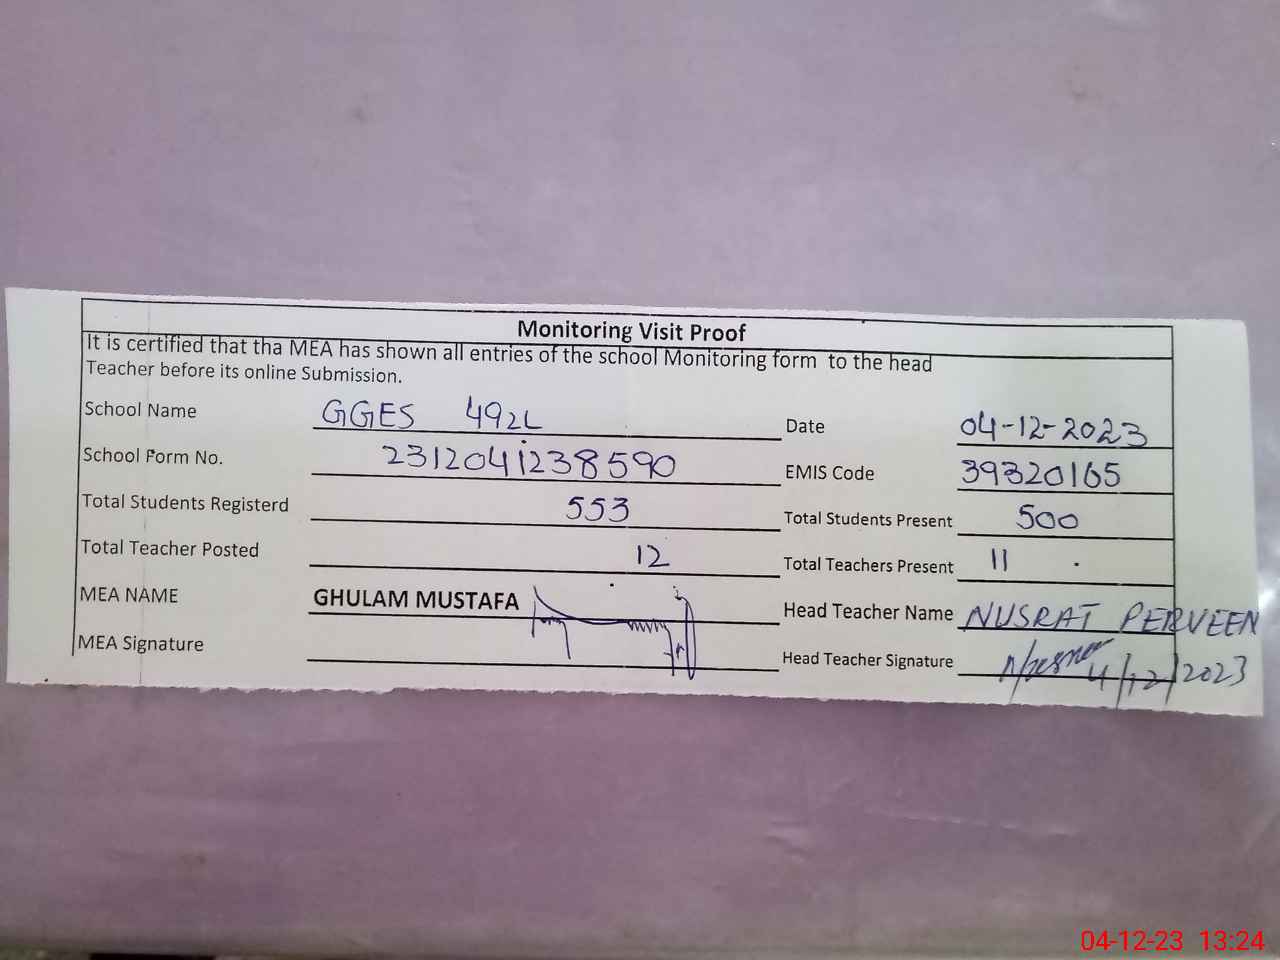 Monitoring Visit Proof
It is certified that tha MEA has shown all entries of the school Monitoring form to the head
Teacher before its online Submission.
School Name GGES 492L Date 04-12-2023
School Form No. 2312041238590 EMIS Code 39320165
Total Students Registerd 553 Total Students Present 500
Total Teacher Posted 12 Total Teachers Present 11
MEA NAME GHULAM MUSTAFA Head Teacher Name NUSRAT PERVEEN
MEA Signature Head Teacher Signature 4/12/2023
04-12-23 13:24